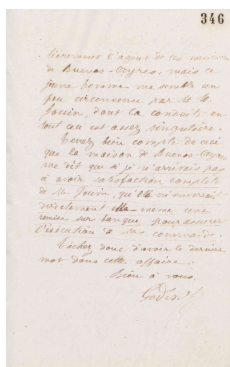 346
l'agent de ces maisons
de Buenos-Ayres, mais ce
jeune homme me semble un
peu circonvenu par M. H.
JacCin, dont la conduite en
tout ceci est assez singulière.
Tenez bien compte de ceci
que la maison de Buenos-Ayres
me dit que si je n'arrivais pas
à avoir satisfaction complète
de M. qu'elle m'enverrait
directement elle-même une
remise sur banque pour assurer
l'exécution de ma commande.
Tâchez donc d'avoir le dernier
mot dans cette affaire.
Bien à vous
Godin